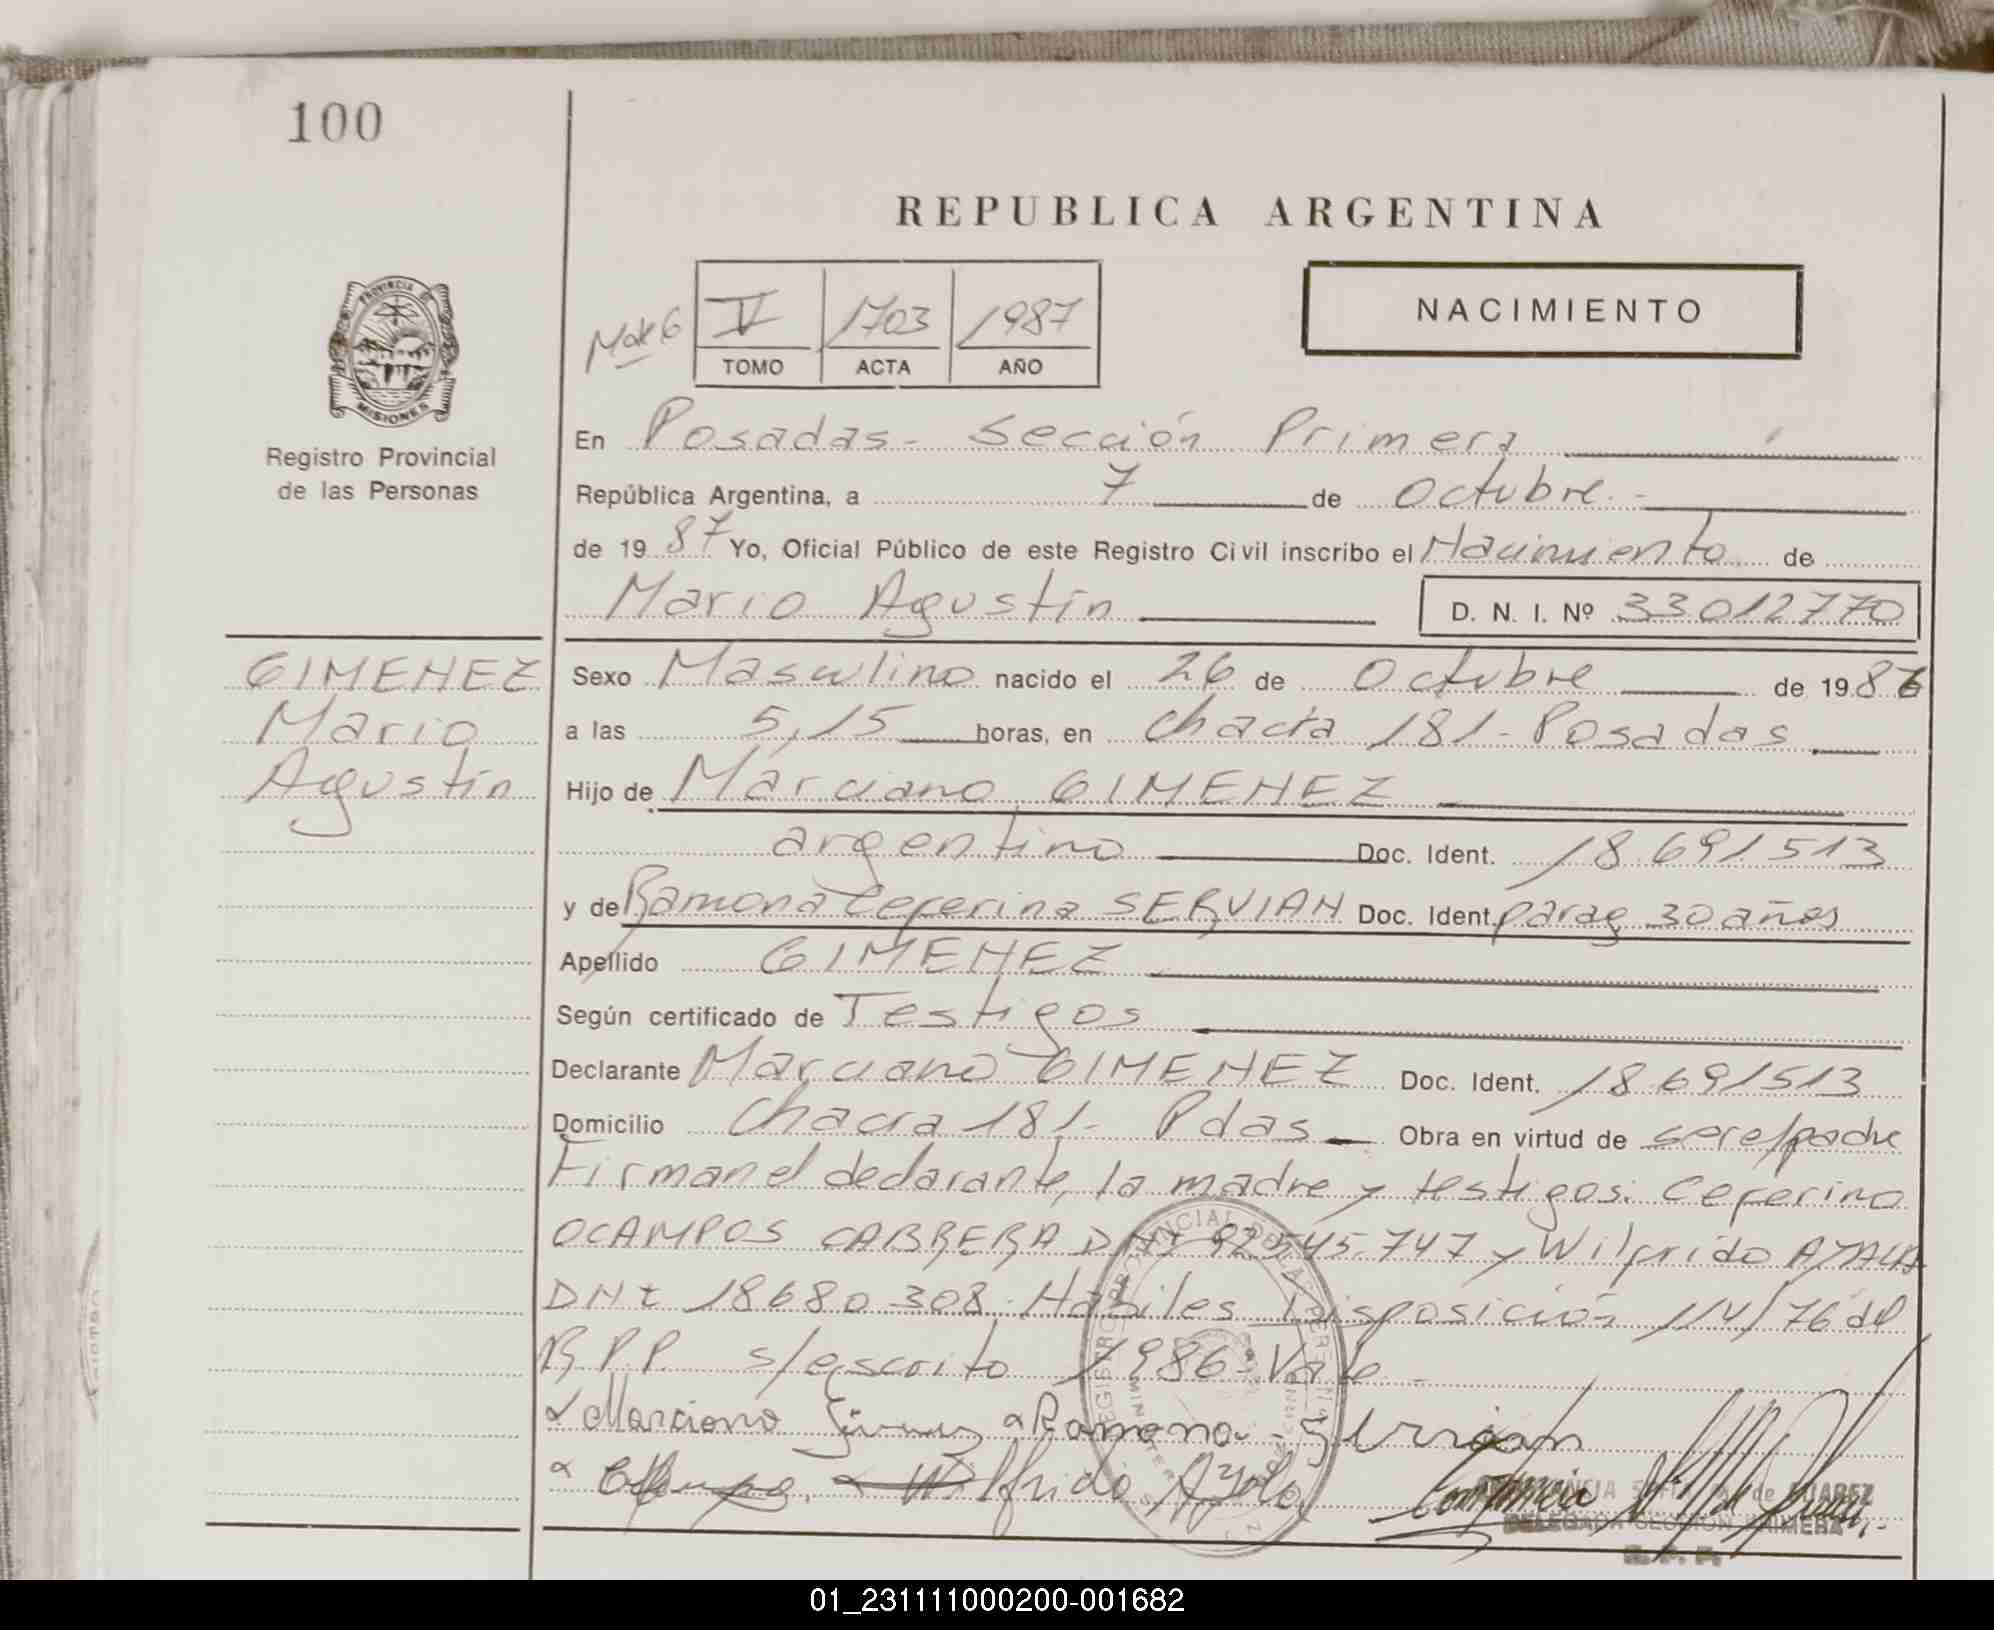 100
REPUBLICA ARGENTINA
V 1703 1987
TOMO ACTA AÑO
NACIMIENTO
PROVINCIA DE MISIONES
Registro Provincial
de las Personas
En Posadas - Sección Primera
República Argentina, a 7 de Octubre.-
de 1987 Yo, Oficial Público de este Registro Civil inscribo el Nacimiento de
Mario Agustín
D. N. I. Nº 33012770
GIMENEZ
Mario
Agustín
Sexo Masculino nacido el 26 de Octubre de 1986
a las 5,15 horas, en Chacra 181 - Posadas
Hijo de Marciano GIMENEZ
argentino Doc. Ident. 18.691.513
y de Ramona Ceferina SERVIAN Doc. Ident. parag 30 años
Apellido GIMENEZ
Según certificado de Testigos
Declarante Marciano GIMENEZ Doc. Ident. 18.691513
Domicilio Chacra 181 - Pdas Obra en virtud de ser el padre
Firman el declarante, la madre y testigos: Ceferino
OCAMPOS CABRERA DNI 92545.747 y Wilfrido AYALA
DNI 18680.308. Hábiles Disposición 114/76 del
R.P.P. s/escrito 1986 - Vale -
Marciano Gimenez Ramona Servian
Wilfrido Ayala
DELEGADA SECCION PRIMERA
R. P. P.
01_231111000200-001682